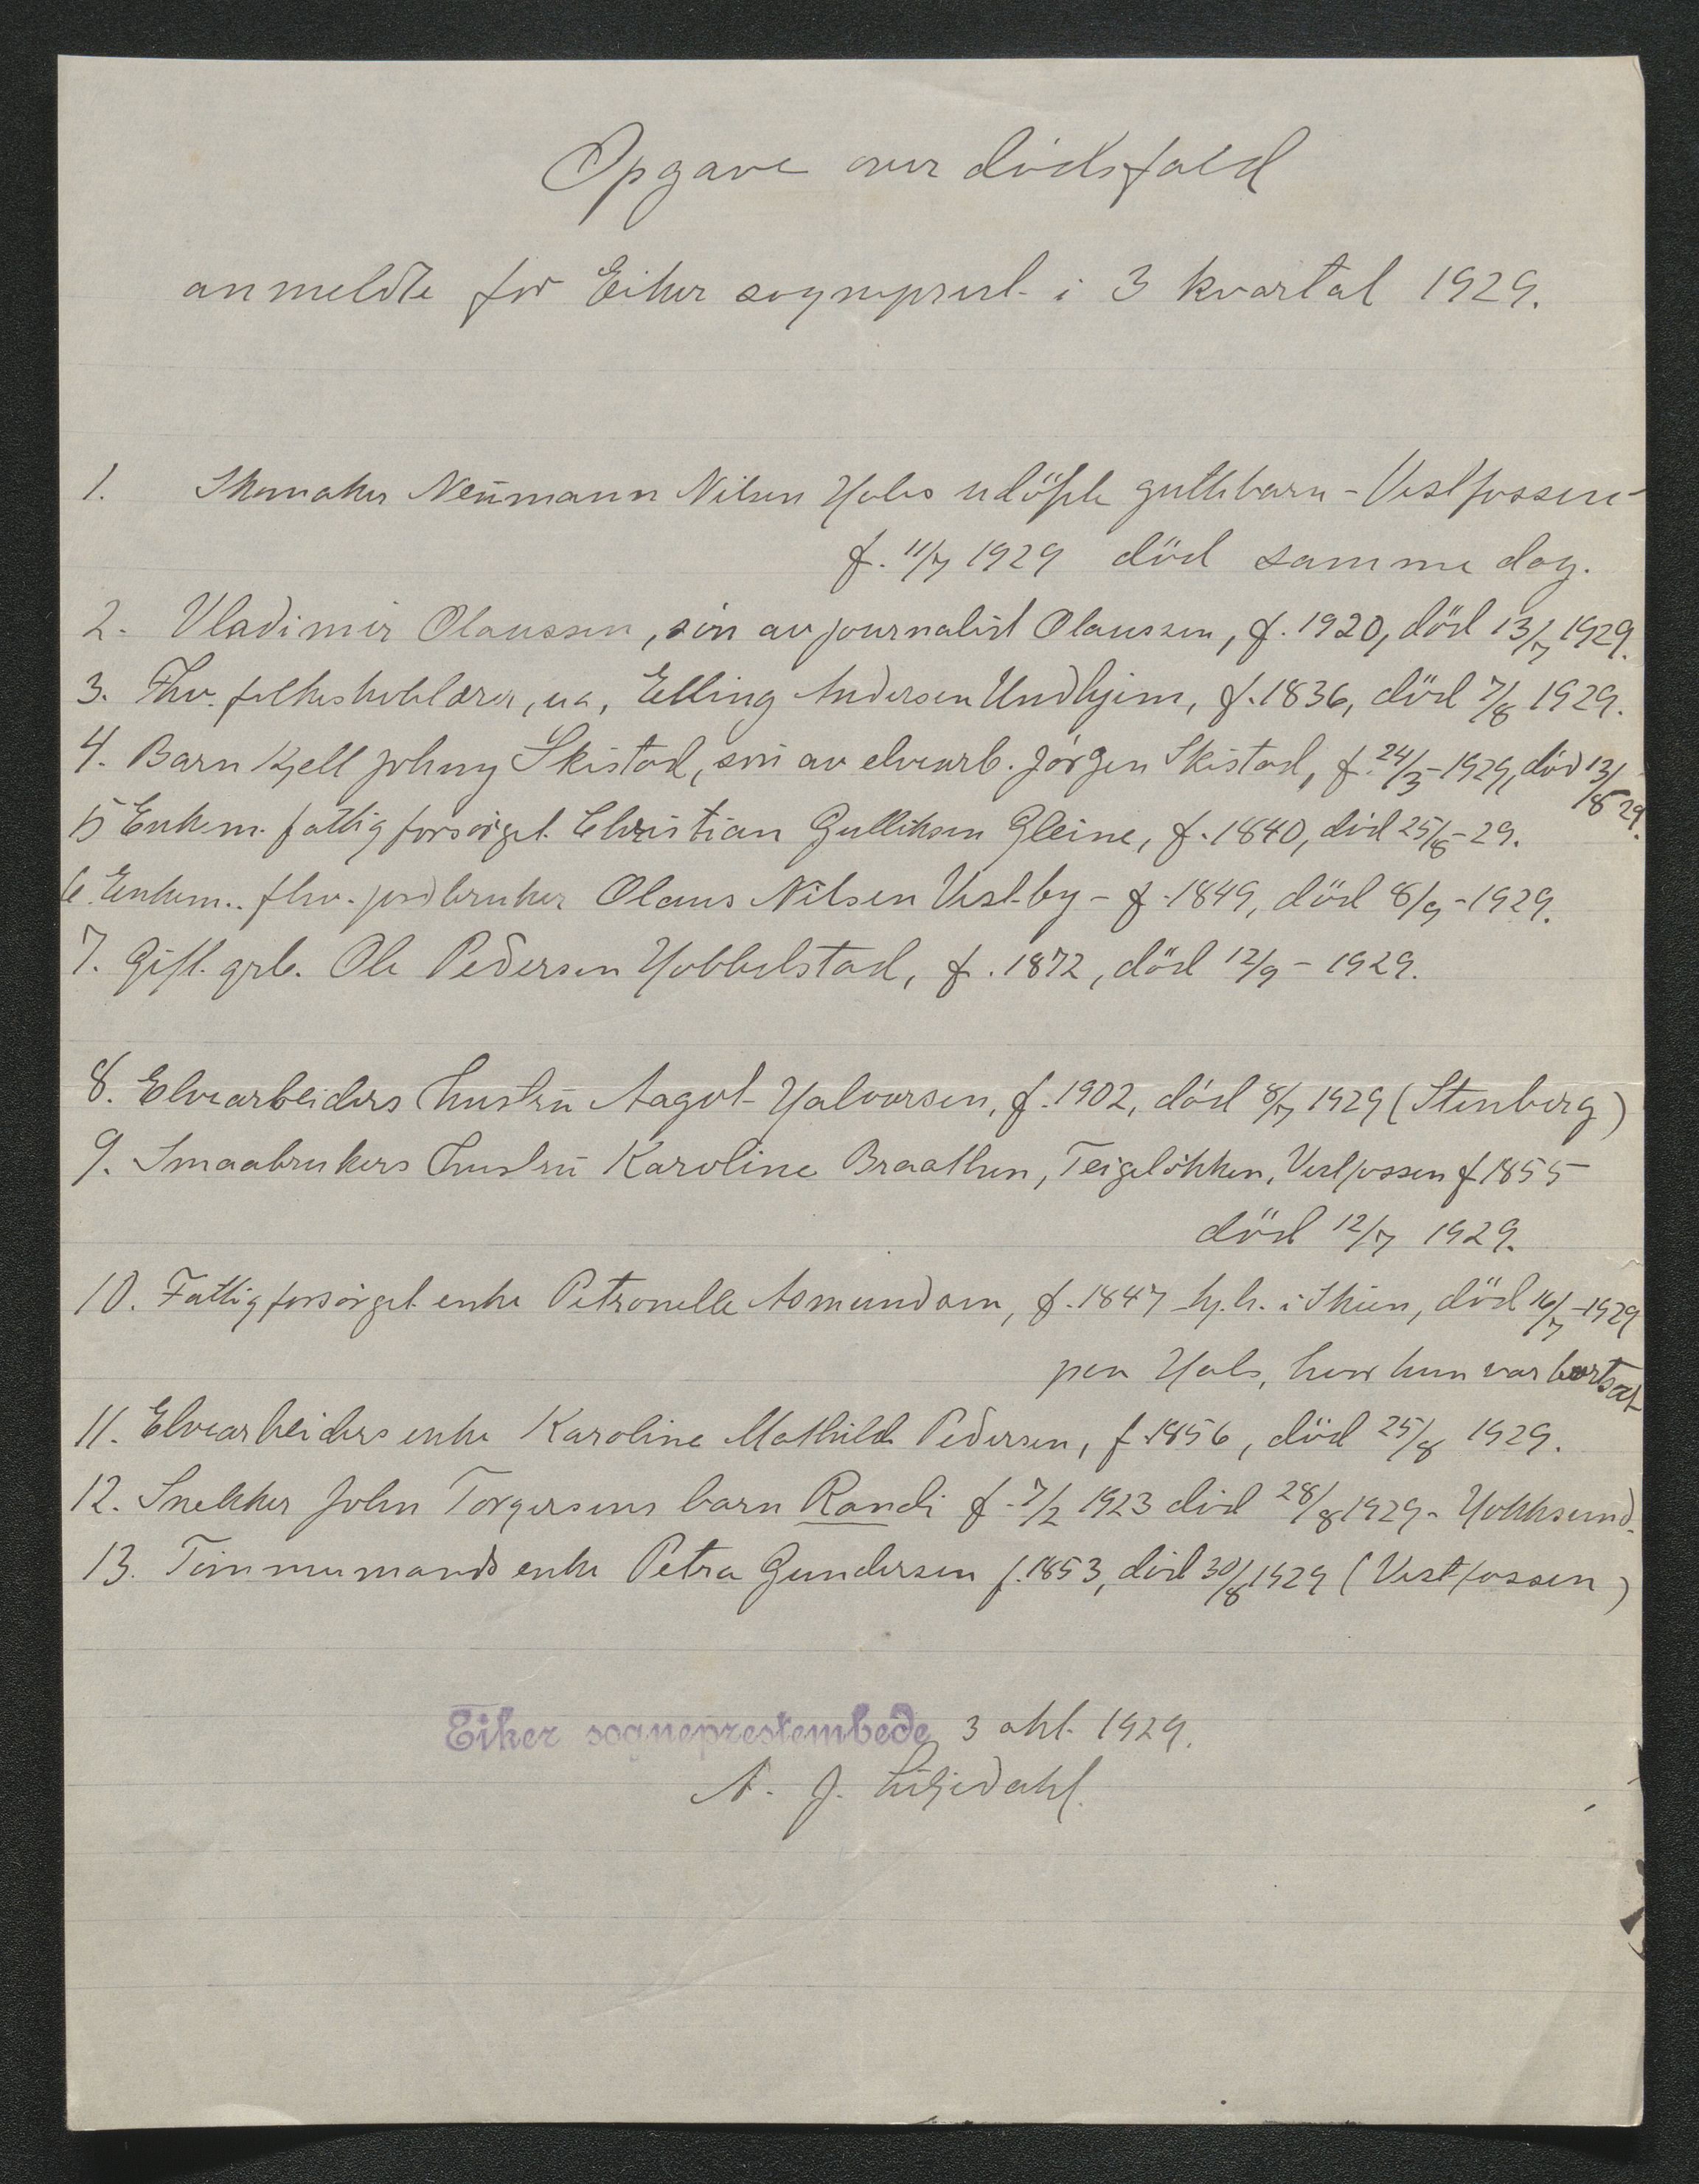 Opgave over dödsfald
anmeldte for Eiker sogneprest i 3 kvartal 1929.
1. Skomaker Neumann Nilsen Hals udöpte guttebarn - Vestfossen -
f. 11/7 1929 död samme dag.
2. Vladimir Olaussen, sön av journalist Olaussen, f. 1920, död 13/7 1929.
3. Fhv. folkeskolelærer, Elling Andersen Undhjem, f. 1836, död 7/8 1929.
4. Barn Kjell Johny Skistad, sön av elvearb. Jörgen Skistad, f. 24/3 - 1929, död 13/8 29.
5 Enkem. fattigforsörget Christian Gulliksen Gleine, f. 1840, död 25/8 - 29.
6. Enkem. fhv. jordbruker Olaus Nilsen Vestby - f. 1849, död 8/9 - 1929.
7. Gift grb. Ole Pedersen Hobbelstad, f. 1872, död 12/9 - 1929.
8. Elvearbeiders hustru Aagot Halvorsen, f. 1902, död 8/7 1929 (Stenberg)
9. Smaabrukers hustru Karoline Braathen, Teigelökken, Vestfossen f 1855
död 12/7 1929.
10. Fattigforsörget enke Petronelle Asmundsen, f. 1847 hj.h. i Skien, död 16/7 - 1929
paa Hals, hvor hun var bortsat
11. Elvearbeiders enke Karoline Mathilde Pedersen, f. 1856, död 25/8 1929.
12. Snekker John Torgersens barn Randi f. 7/2 1923 död 28/8 1929 - Hokksund.
13. Tömmermands enke Petra Gundersen f. 1853, död 30/8 1929 (Vestfossen)
Eiker sogneprestembede 3 okt. 1929.
N. J. Liljedahl.